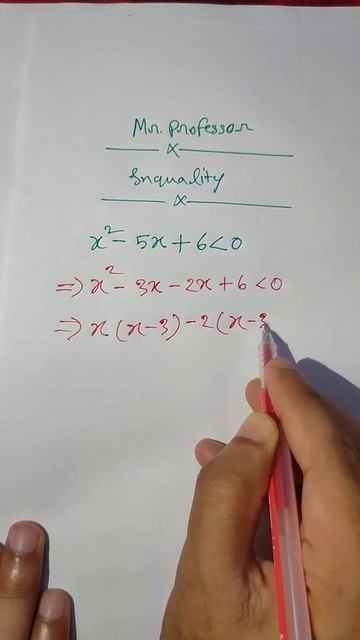 Mr. Professor
x
Inquality
x
x² - 5x + 6 < 0
⇒ x² - 3x - 2x + 6 < 0
⇒ x (x-3) - 2 (x-3